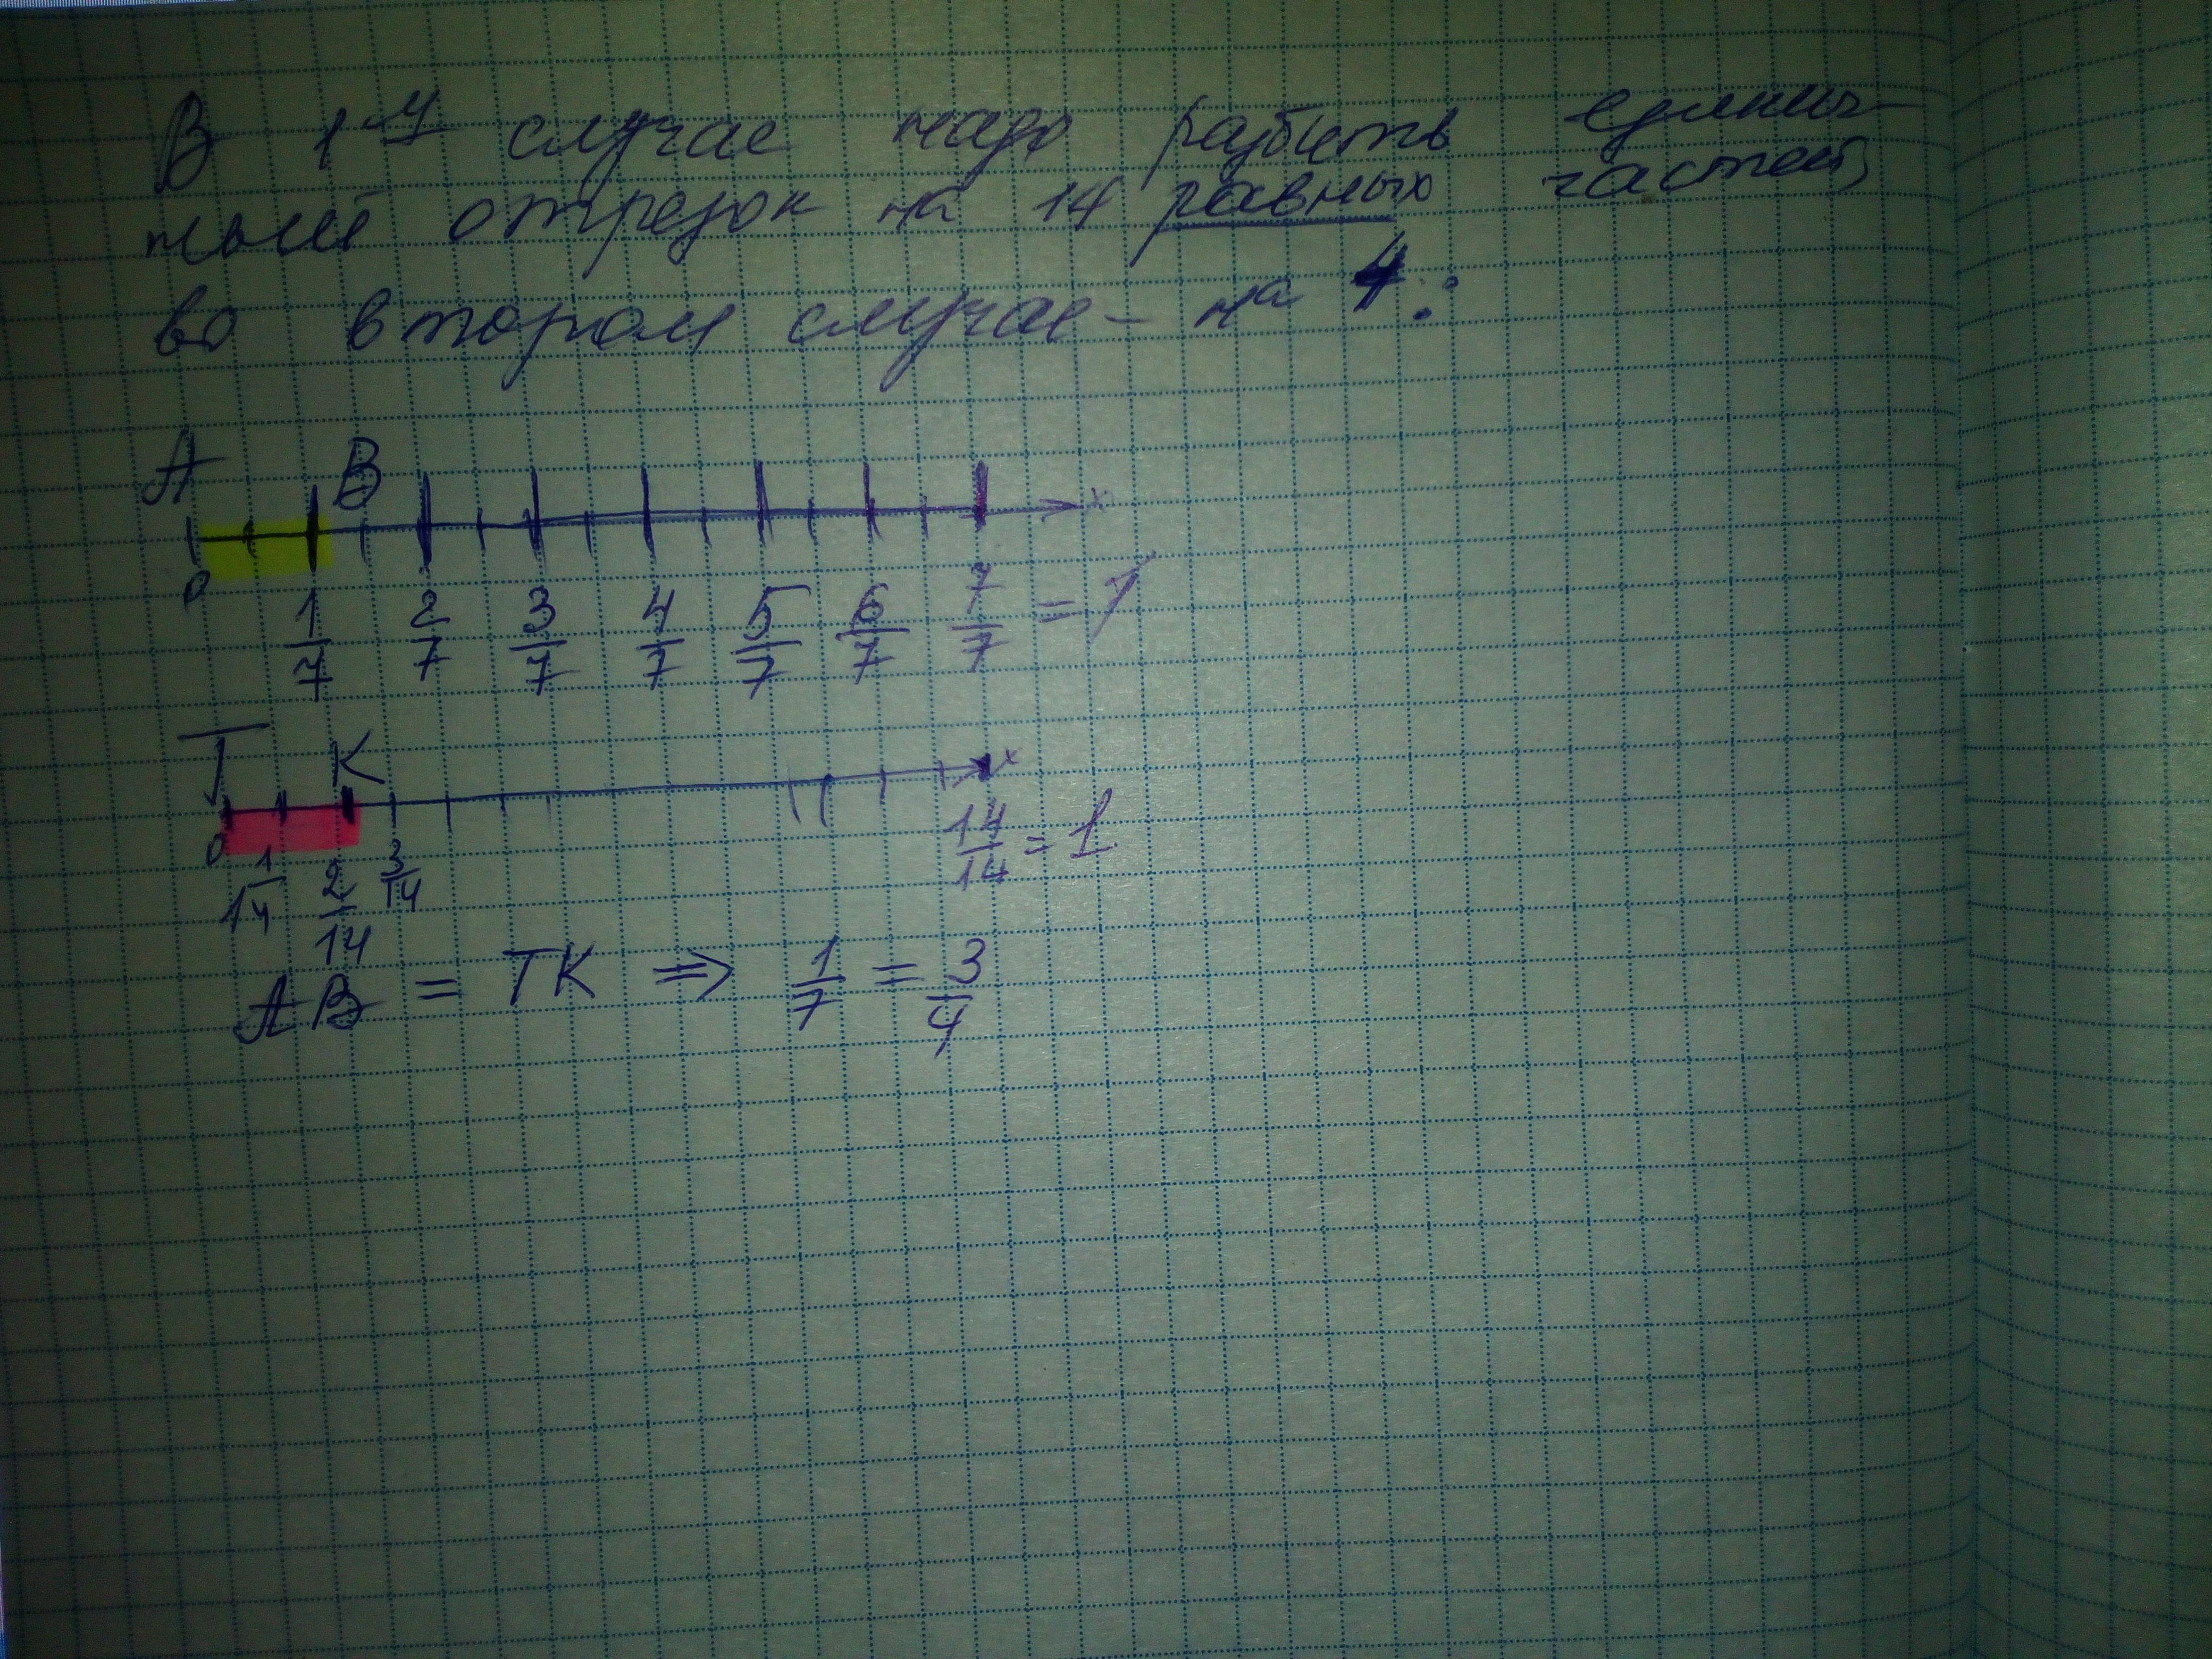 В 1ом случае надо разбить единич-
ный отрезок на 14 равных частей
во втором случае - на 4:
A B
x
0
1/7 2/7 3/7 4/7 5/7 6/7 7/7 = 1
T K
x
0 1/14 2/14 3/14 14/14 = 1
AB = TK ⇒ 1/7 = 3/4